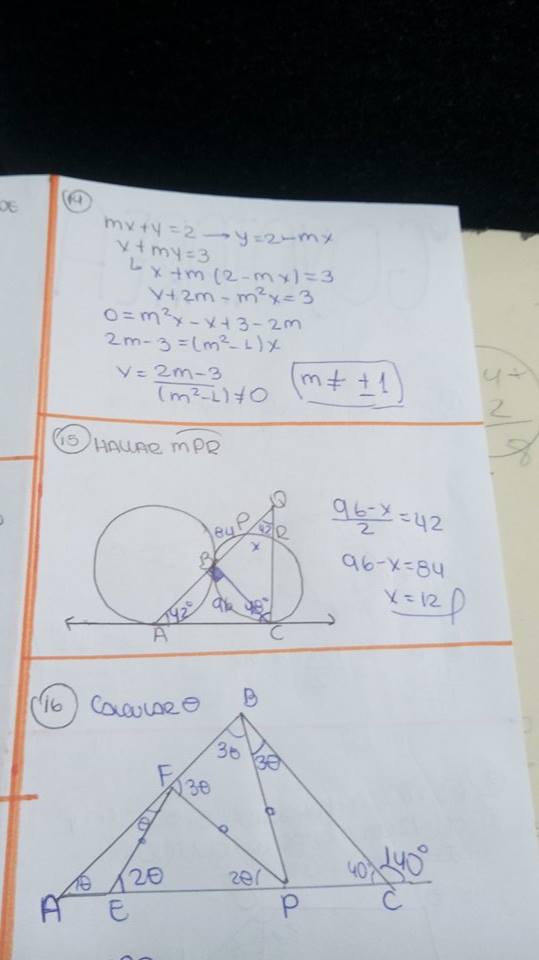 14
mx+y=2 → y=2-mx
x+my=3
↳ x+m(2-mx)=3
x+2m-m²x=3
0=m²x-x+3-2m
2m-3=(m²-1)x
x = 2m-3
(m²-1)≠0
m≠±1
15 HALLAR mPR
Q
84 P 42 R
x
B
42° 96 48°
A C
96-x/2 = 42
96-x=84
x=12
16 CALCULAR θ
B
3θ 3θ
F 3θ
θ
θ 2θ 2θ 40° 140°
A E P C
4+
2